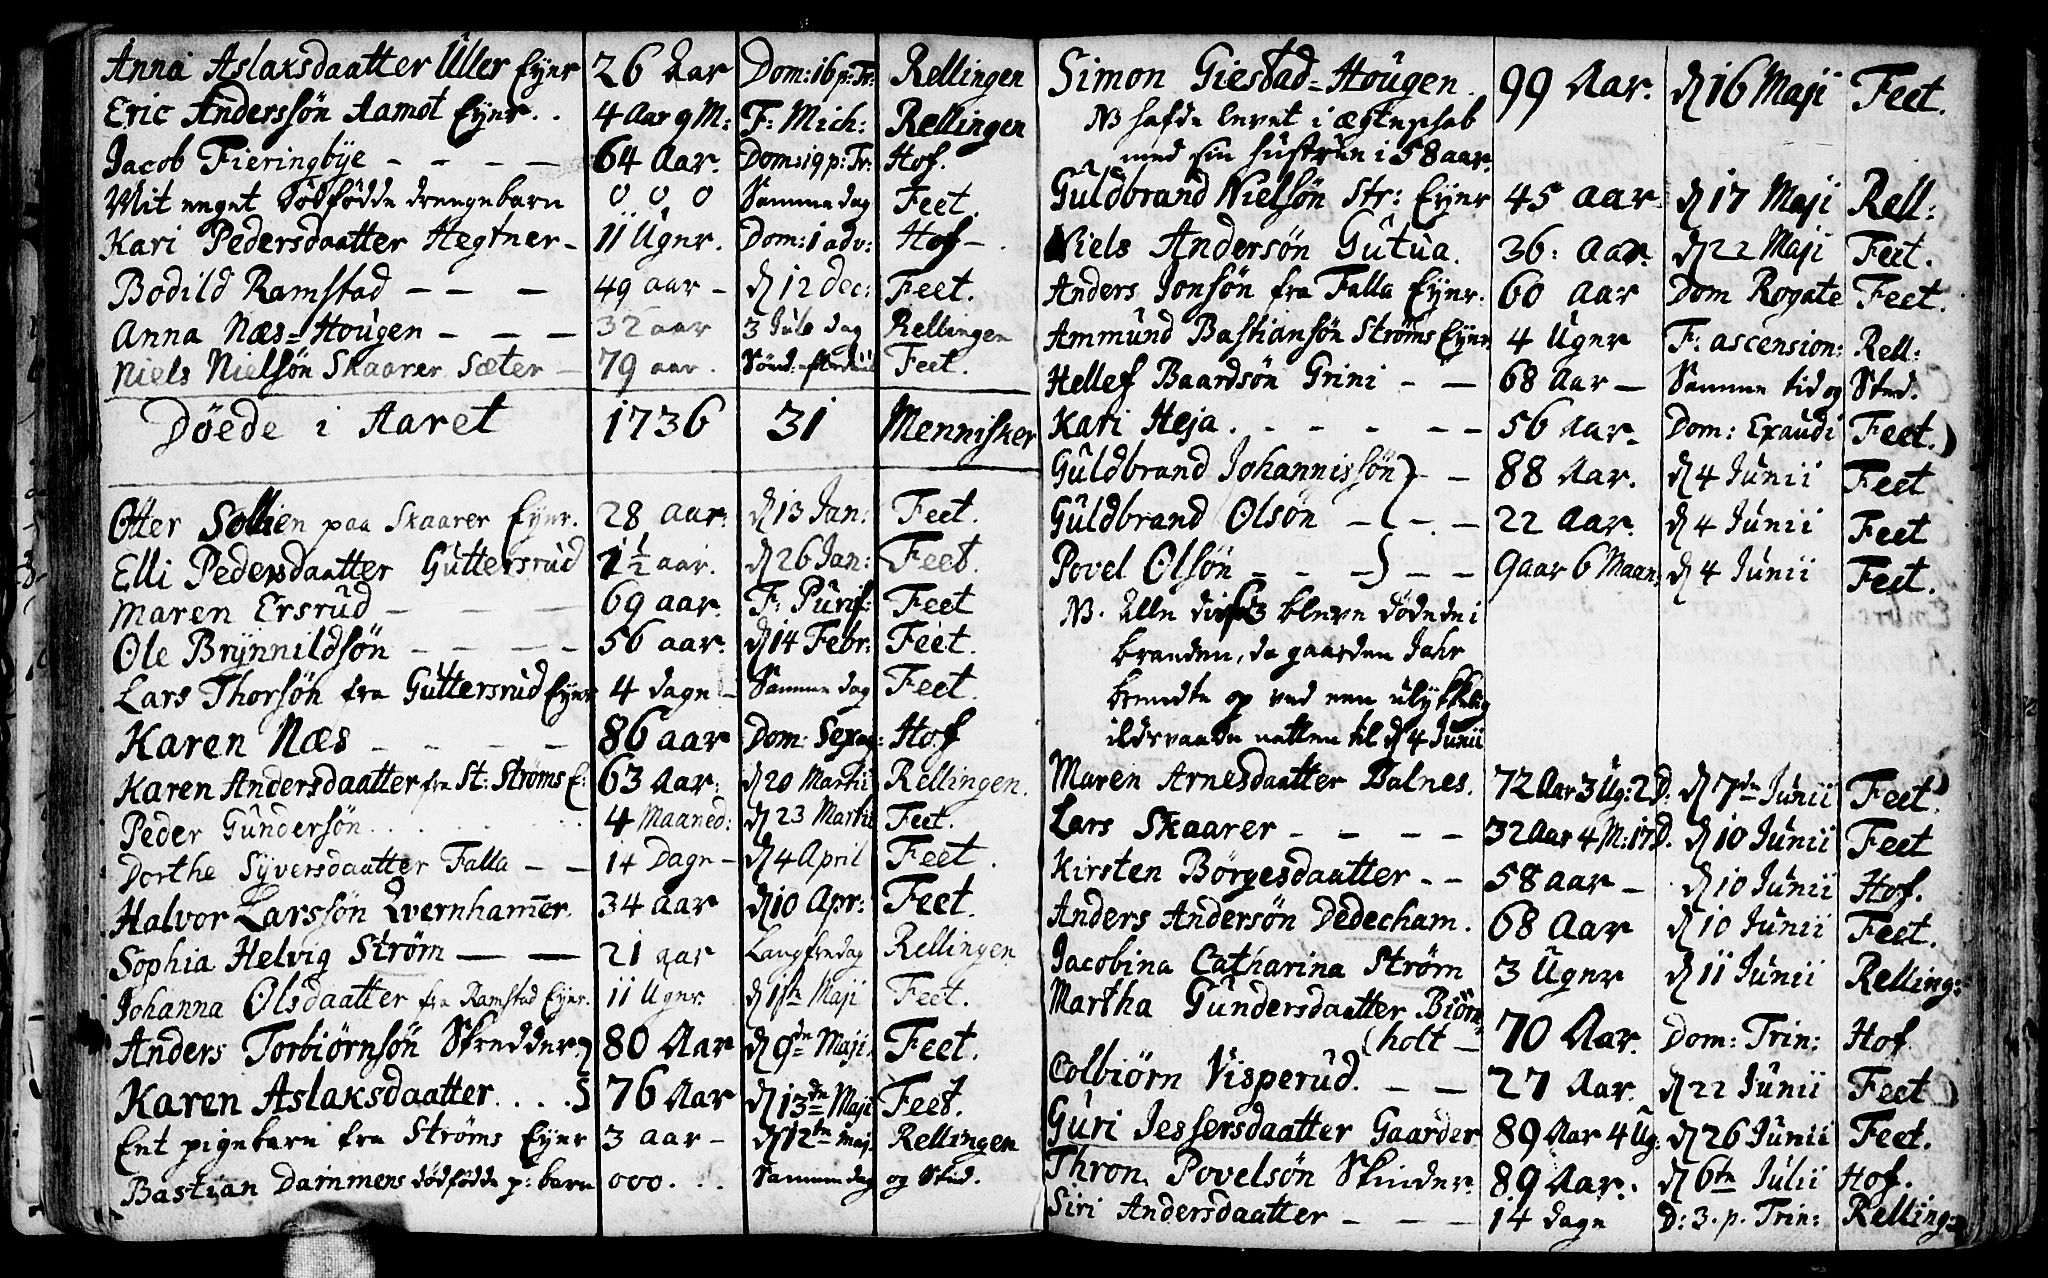 Anna Aslaksdaatter Uller Eyer 26 Aar Dom: 16 p: Tr: Rellingen
Eric Anderssön Aamot Eyer.. 4 Aar 9 M: F: Mich: Rellingen
Jacob Fieringbÿe - - - - 64 Aar. Dom: 19 p: Tr: Hof.
Mit eeget dödfödde drengebarn 0 0 0 Samme dag Feet.
Kari Pedersdaatter Hegtner - 11 Uger. Dom: 1 adv: Hof -.
Bodild Ramstad - - - 49 aar - d 12 Dec: Feet.
Anna Næs=Hougen - - - 32 aar 3 Jule dag Rellingen
Niels Nielsön Skaarer Sæter - 79 aar. Sönd: efter Feet.
Döede i Aaret 1736 31 Mennisker
Otter Sollien paa Skaarer Eyer. 28 aar: d 13 Jan: Feet.
Elli Pedersdaatter Guttersrud 1½ aar. d 26 Jan: Feet.
Maren Ersrud - - - - 69 aar. F: Purif: Feet
Ole Brÿnnildsön - - - - 56 aar. d 14 Febr: Feet.
Lars Thorsön fra Guttersrud Eyer 4 dage - Samme dag Feet.
Karen Næs - - - - 86 aar Dom: Sexag: Hof
Karen Andersdaatter fra St: Ströms E: 63 Aar: d 20 Martii Rellingen.
Peder Gundersön..... 4 Maaned: d 23 Martii Feet.
Dorthe Sÿversdaatter Falla - - 14 Dage - d 4 April Feet.
Halvor Larssön Qvernham̄er. 34 Aar d 10 Apr: Feet.
Sophia Helvig Ström - - 21 aar Langfredag Rellingen
Johanna Olsdaatter fra Ramstad Eyer. 11 Uger. d 1ste Maji Feet.
Anders Torbiörnsön Skredder } 80 Aar d 9de Maji. Feet.
Karen Aslaksdaatter.... } 76 Aar d 13de Maji Feet.
Ent pigebarn fra Ströms Eyer 3 aar - d 12te maj. Rellingen
Bastian Dammens dödfödde p: barn 000... Samme dag og Sted.
Simon Giestad=Hougen. 99 Aar. d 16 Maji Feet.
NB hafde levet i ægteskab
med sin hustrue i 58 aar.
Guldbrand Nielsön Str: Eyer 45 aar. d 17 Maji Rell:
Niels Andersön Gutua. 36: Aar. d 22 Maji Feet.
Anders Jonsön fra Falla Eyer. 60 Aar Dom Rogate Feet.
Ammund Bastiansön Ströms Eyer 4 Uger F: ascension: Rell:
Hellef Baardsön Grini - - 68 Aar - Samme tid og Sted.
Kari Heja. - - - - - 56 Aar. Dom: Exaudi Feet.
Guldbrand Johannissön } - - 88 Aar. d 4 Junii Feet
Guldbrand Olsön - { -. - 22 Aar. d 4 Junii Feet
Povel Olsön - - - } - - 9 aar 6 Maan: d 4 Junii Feet.
NB. Alle disse 3 bleve döde i
branden, da gaarden Jahr
brendte op ved een ulÿkkelig
ildsvaade natten til d 4 Junii
Maren Arnesdaatter Balnes. 72 Aar 3 Ug: 2 D: d 7de Junii Feet.
Lars Skaarer - - - - 32 Aar 4 M: 17 D. d 10 Junii Feet
Kirsten Börgesdaatter - - 58 aar - d 10 Junii Hof.
Anders Andersön Dedecham. 68 Aar d 10 Junii Feet.
Jacobina Catharina Ström 3 Uger d 11 Junii Relling:
Martha Gundersdaatter Biörn
(holt - 70 Aar. Dom: Trin: Hof
Colbiörn Visperud. - - 27 Aar. d 22 Junii Feet
Guri Jessersdaatter Gaarder 89 Aar 4 Ug: d 26 Junii Feet.
Thron Povelsön Skinder. 89 Aar. d 6te Julii Hof.
Siri Andersdaatter - - - 14 dage D: 3. p. Trin: Relling: